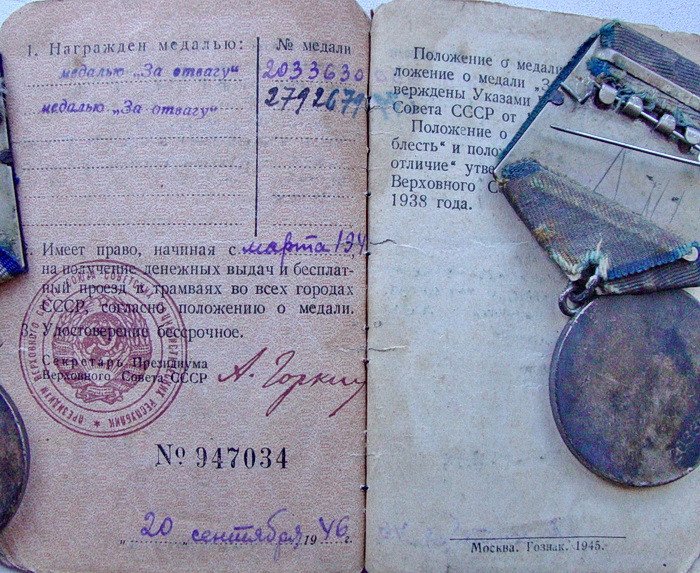 1. Награжден медалью: № медали
медалью „За отвагу“ 2033630
медалью „За отвагу“ 2792679
2. Имеет право, начиная с марта 194
на получение денежных выдач и бесплат-
ный проезд в трамваях во всех городах
СССР, согласно положению о медали.
3. Удостоверение бессрочное.
Секретарь Президиума
Верховного Совета СССР
А. Горкин
№ 947034
„20 сентября 1946 г.
Положение о медали
ложение о медали „З
верждены Указами
Совета СССР от
Положение о
блесть“ и поло
отличие“ утве
Верховного С
1938 года.
Москва. Гознак. 1945.